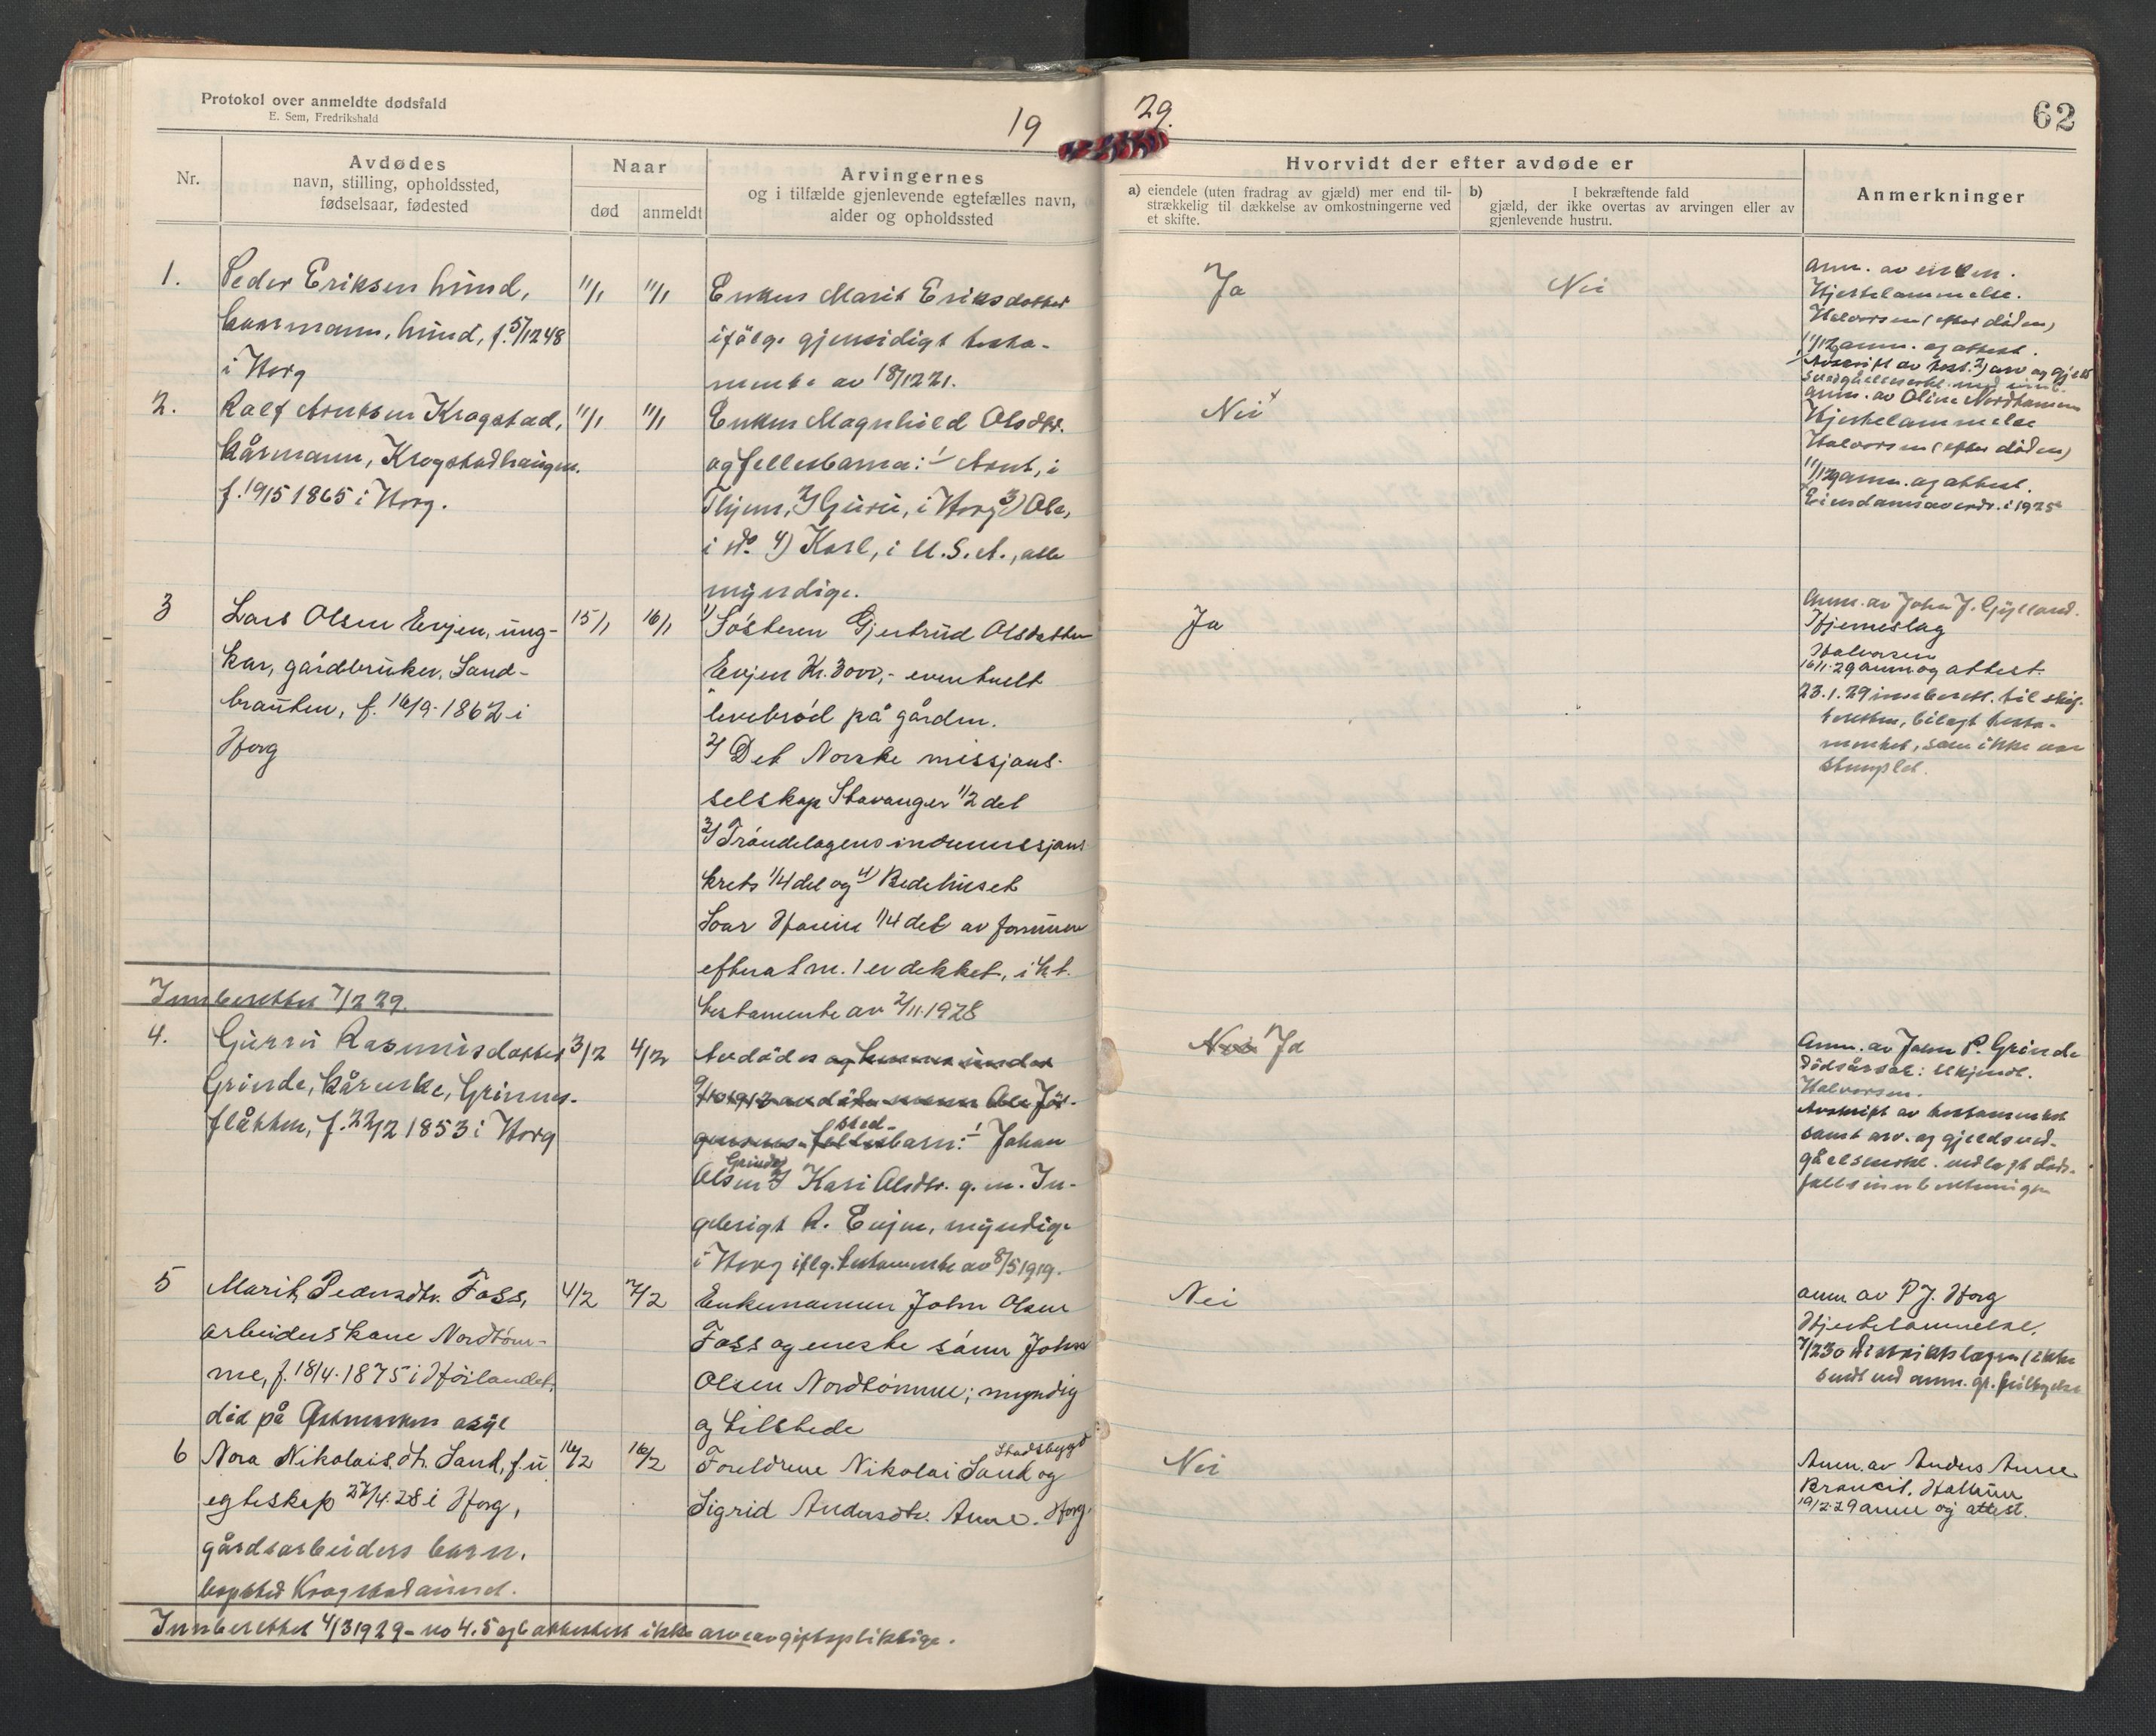 Protokol over anmeldte dødsfald
E. Sem, Fredrikshald
19
29.
62
Nr.
Avdødes
navn, stilling, opholdssted,
fødselsaar, fødested
Naar
død
anmeldt
Arvingernes
og i tilfælde gjenlevende egtefælles navn,
alder og opholdssted
Hvorvidt der efter avdøde er
a) eiendele (uten fradrag av gjæld) mer end til-
strækkelig til dækkelse av omkostningerne ved
et skifte.
b) I bekræftende fald
gjæld, der ikke overtas av arvingen eller av
gjenlevende hustru.
Anmerkninger
1.
Peder Eriksen Lund,
Lund, f. 5/12 48
i Horg
11/1
11/1
Enken Marit Eriksdatter
ifölge gjensidigt testa-
mente av 18/12 21.
Ja
Nei
Anm. av enken.
Hjertelammelse.
Halvorsen (efter döden)
11/1 29 anm. og attest.
2.
Rolf Arntsen Krogstad,
kårmann, Krogstadhaugen.
f. 19/5 1865 i Horg.
11/1
11/1
Enken Magnhild Olsdtr.
og fellesbarna: 1) Arnt, i
2) Guru, i Horg 3) Ole,
i do. 4) Karl, i U.S.A., alle
myndige.
Nei x
anm. av Oline Nordhammer
Hjertelammelse
Halvorsen (efter döden)
11/1 29 anm. og attest.
i 1925
3
Lars Olsen Evjen, ung-
kar, gårdbruker, Sand-
brauten, f. 16/9 1862 i
Horg
15/1
16/1
1) Søsteren Gjertrud Olsdatter
Evjen Kr. 3000,- eventuelt
levebrød på gården.
2) Det Norske missjons-
selskap Stavanger 1/2 del
3) Trøndelagens indremissjons
krets 1/4 del og 4) Bedehuset
Horg 1/4 del av formuen
efterat nr. 1 er dekket, i h.t.
testamente av 2/11 1928
Ja
Anm. av John J. Gylland.
Hjerneslag
Halvorsen
16/1-29 anm. og attest.
23.1.29 innberett. til skif-
teretten, bilagt testa-
mentet, som ikke var
stemplet.
Innberettet 7/2 29.
4.
Gurru Rasmusdatter
Grinde, kårenke, Grinnes-
flåtten, f. 22/2 1853 i Horg
3/2
4/2
Avdödes og
9/10 1912 avdöde mann Ole Jör-
gensens felles sted-barn: 1) Johan
Olsen Grinde 2) Kari Olsdtr. g. m. In-
gebrigt R. Evjen, myndige
i Horg iflg. testamente av 8/5 1919.
Nei Ja
Anm. av John P. Grinde
Dödsårsak: Ukjendt.
Halvorsen.
Avskrift av testamentet
samt arv- og gjeldsved-
gåelseserkl. vedlagt döds-
fallsinnberetningen
5
Marit Pedersdtr. Foss,
arbeiderskone Nordtöm-
me, f. 18/4 1875 i Höilandet,
död på Östmarken asyl
4/2
7/2
Enkemannen John Olsen
Foss og eneste sönn John
Olsen Nordtømme; myndig
og tilstede
Nei
anm. av P J. Horg
Hjertelammelse.
distriktslægen (ikke
sendt ved anm.
6
Nora Nikolaisdtr. Sand, f. u
egteskap 27/4.28 i Horg,
gårdsarbeiders barn.
bopsted Krogstadaunet.
16/2
16/2
Foreldrene Nikolai Sand Stadsbygd og
Sigrid Andersdtr. Aune. Horg.
Nei
Anm. av Anders Aune
Bronkit. Hallum
19/2-29 anm og attest.
Innberettet 4/3 1929 - no 4. 5 og 6 attestert ikke arveavgiftspliktige.